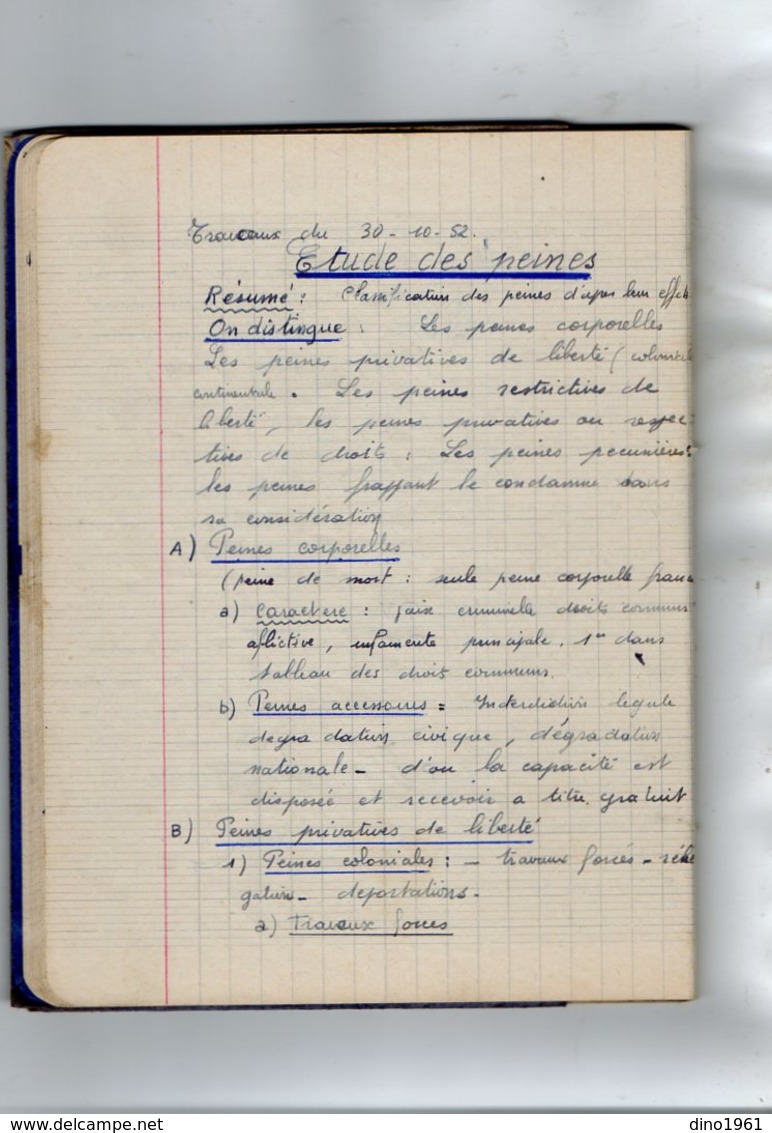 Travaux du 30-10-52.
Etude des peines
Résumé : Classification des peines d'apres leur effets
On distingue : Les peines corporelles
Les peines privatives de liberté (colonial
continentale. Les peines restrictives de
liberté, les peines privatives ou respec
tives de droits : Les peines pecunières
les peines frappant le condamne dans
sa considération
A) Peines corporelles
(peine de mort : seule peine corporelle franc
a) Caractere : criminelle droits communs
aflictive, infamente principale. 1er dans
tableau des droit communs.
b) Peines accessoires = Interdiction legale
degradation civique, dégradation
nationale - d'ou la capacité est
disposée et recevoir a titre gratuit
B) Peines privatives de liberté
1) Peines coloniales : - travaux forcés - réle
gation - deportations -
a) Travaux forces
delcampe.net
dino1961